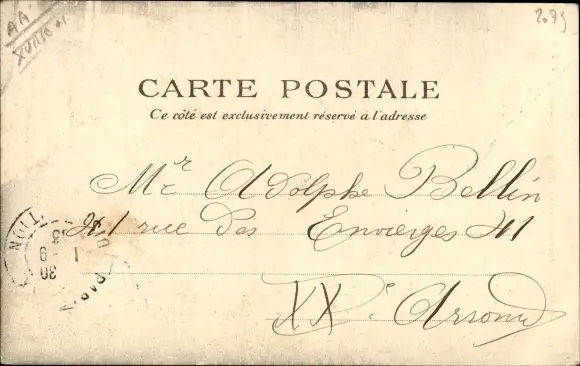 CARTE POSTALE
Ce côté est exclusivement réservé à l'adresse
Mr Adolphe Bellin
41 rue des Envierges 41
XXe Arrond
2079
AA